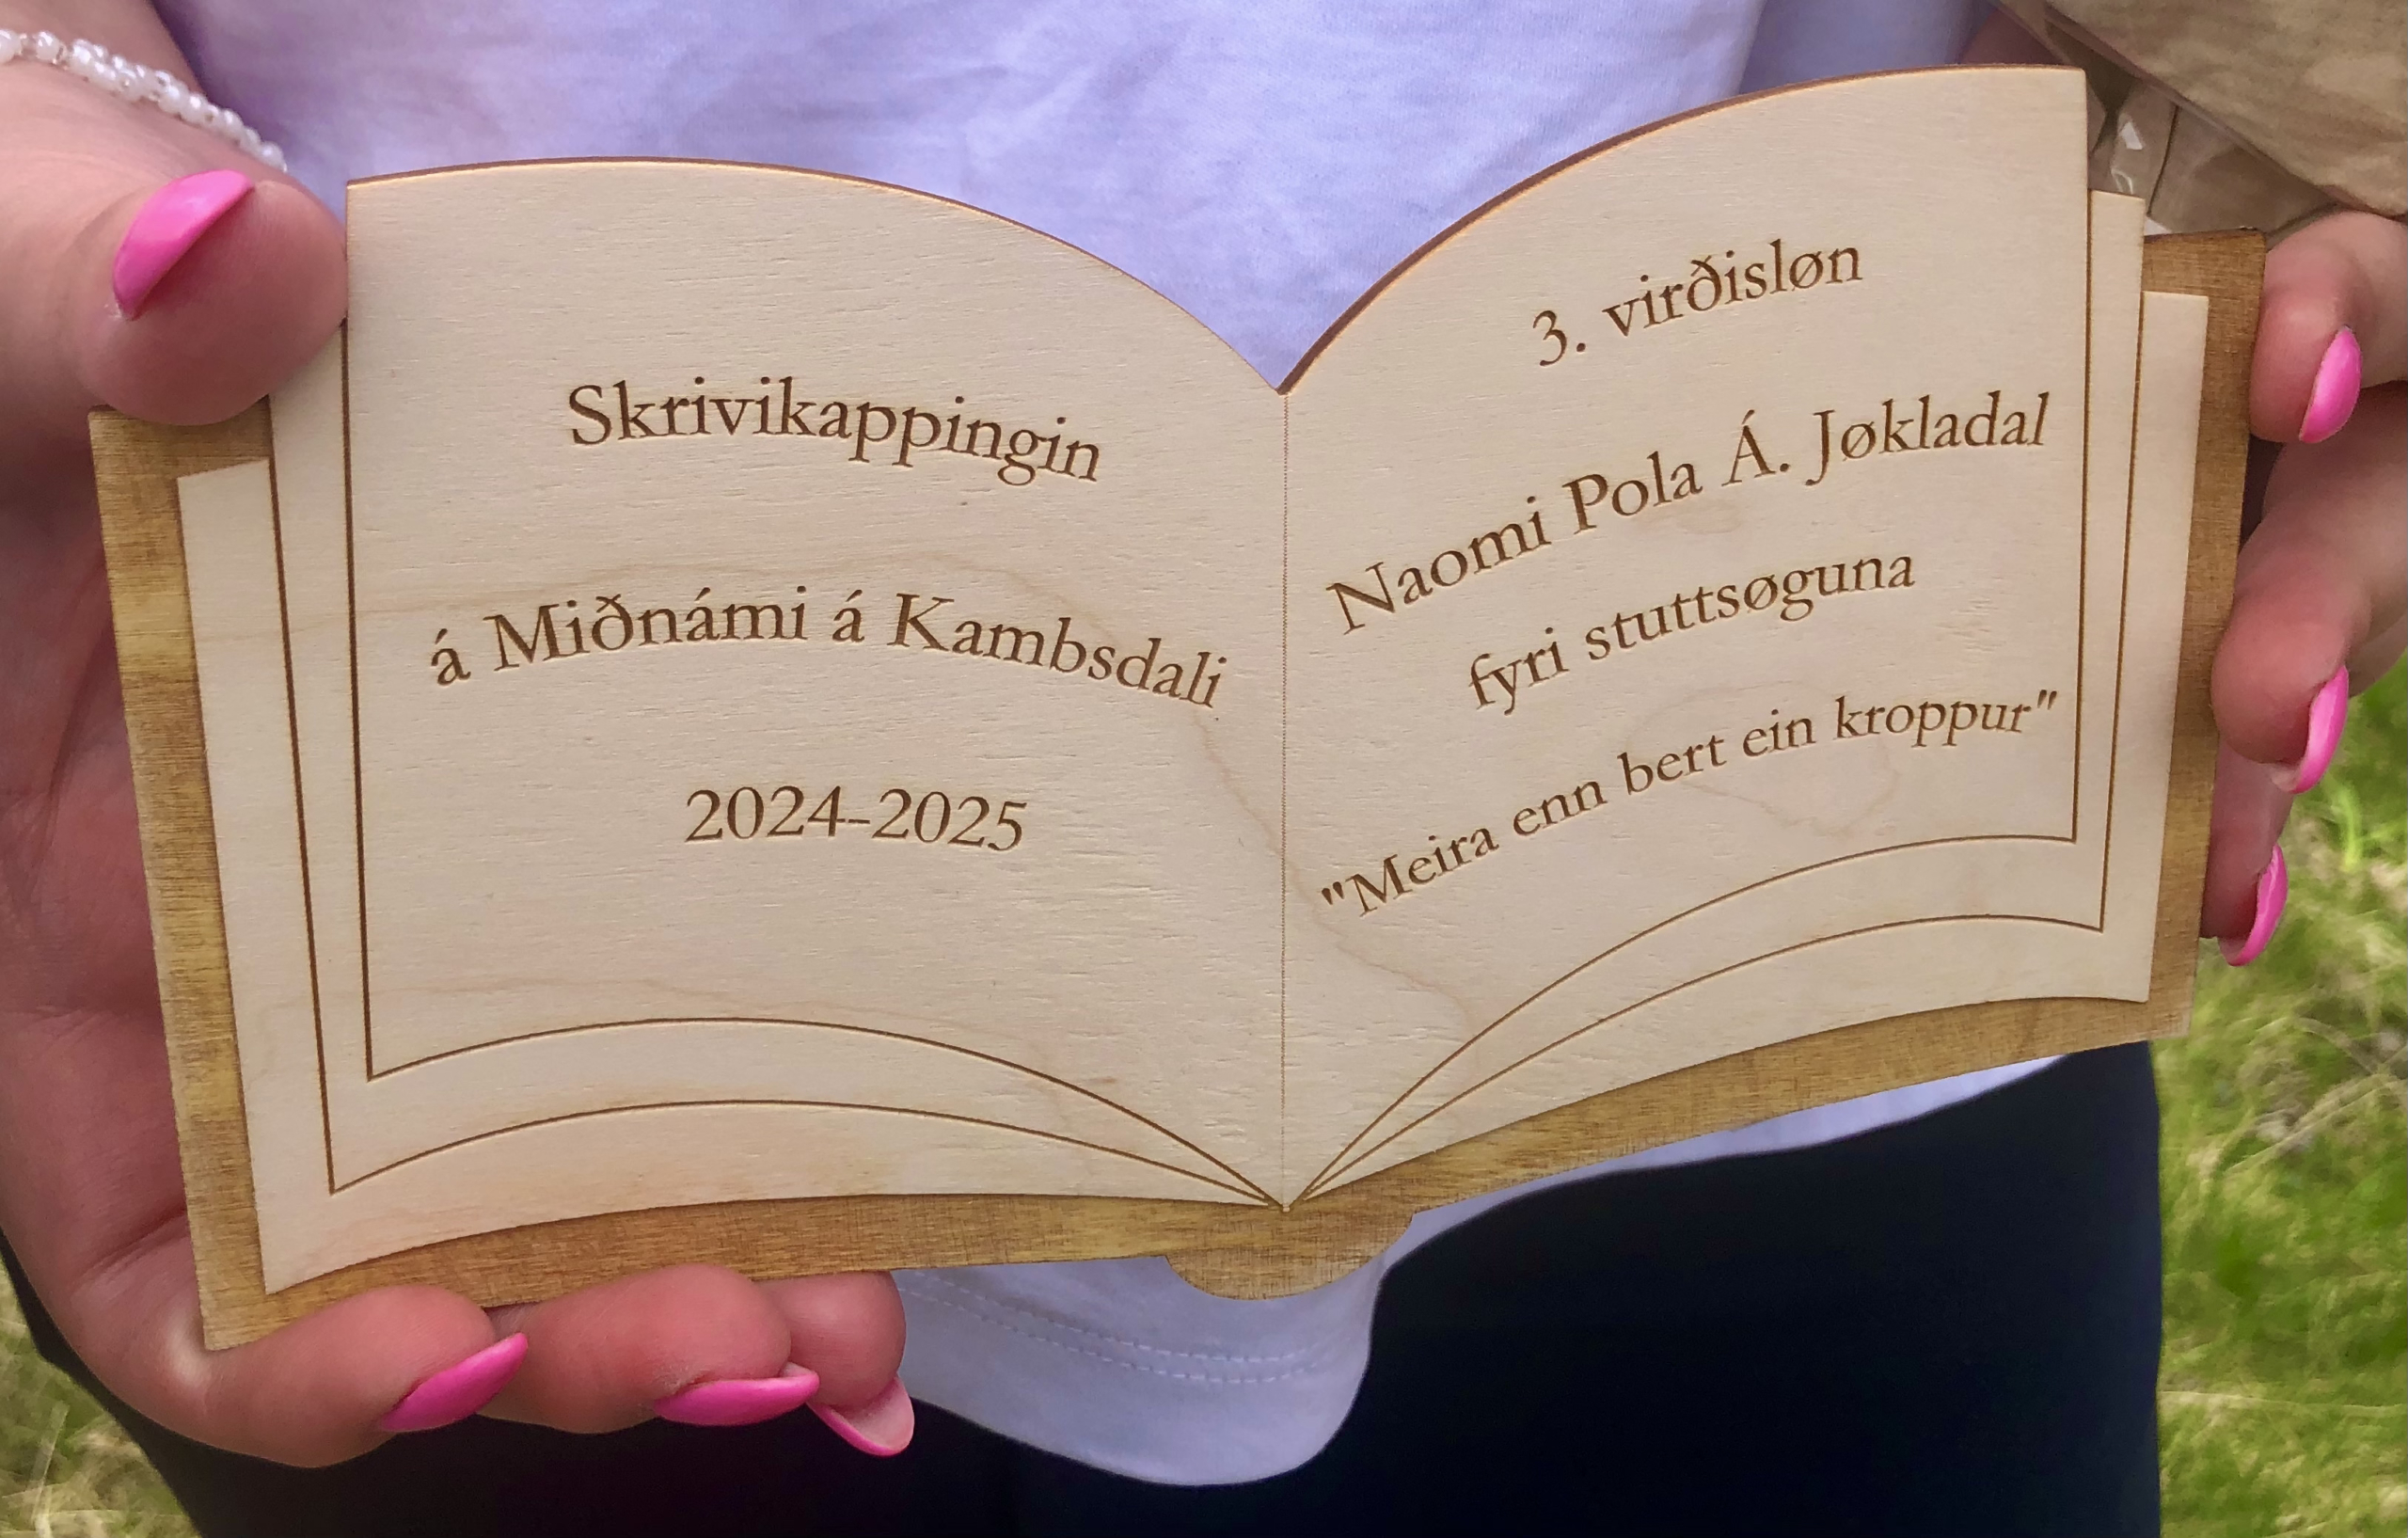 Skrivikappingin
á Miðnámi á Kambsdali
2024-2025
3. virðisløn
Naomi Pola Á. Jøkladal
fyri stuttsøguna
"Meira enn bert ein kroppur"